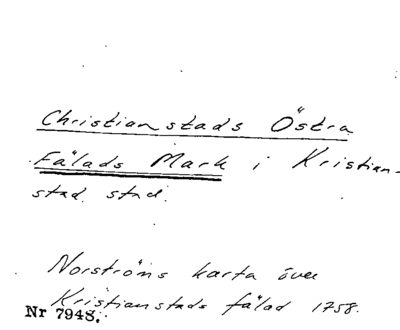 Christianstads Östra
Fälads Mark i Kristian-
stad stad.
Norströms karta över
Kristianstads fälad 1758.
Nr 7948.